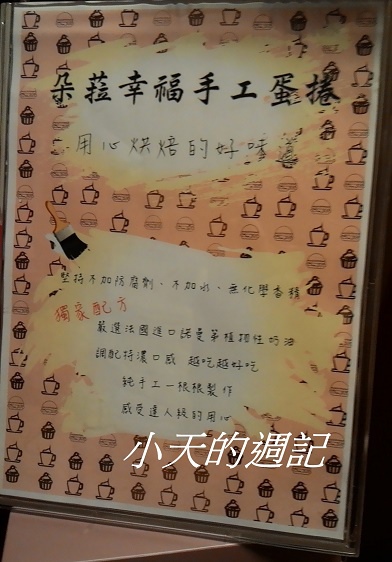 朵菈幸福手工蛋捲
用心烘焙的好味道
堅持不加防腐劑、不加水、無化學香精
獨家配方
嚴選法國進口諾曼第植物性奶油
調配特濃口感 越吃越好吃
純手工一根根製作
感受達人級的用心
小天的週記